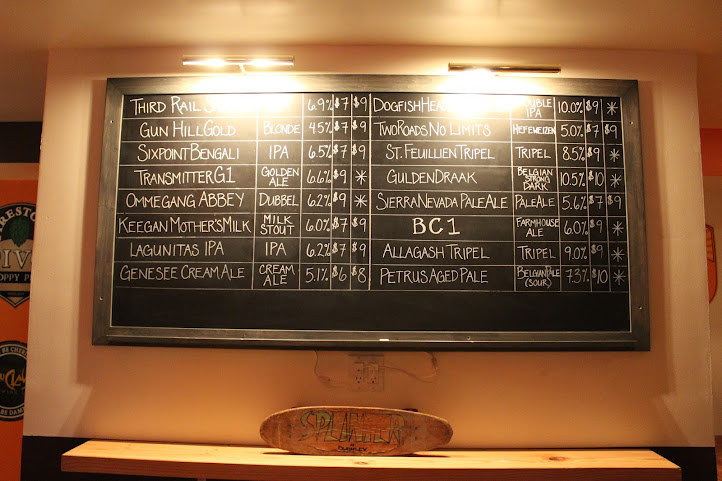 THIRD RAIL 6.9% $7 $9
GUN HILL GOLD BLONDE 4.5% $7 $9
SIXPOINT BENGALI IPA 6.5% $7 $9
TRANSMITTER G1 GOLDEN ALE 6.6% $9 *
OMMEGANG ABBEY DUBBEL 6.2% $9 *
KEEGAN MOTHER'S MILK MILK STOUT 6.0% $7 $9
LAGUNITAS IPA IPA 6.2% $7 $9
GENESEE CREAM ALE CREAM ALE 5.1% $6 $8
DOGFISH HEAD DOUBLE IPA 10.0% $9 *
TWO ROADS NO LIMITS HEFEWEIZEN 5.0% $7 $9
ST. FEUILLIEN TRIPEL TRIPEL 8.5% $9 *
GULDEN DRAAK BELGIAN STRONG DARK 10.5% $10 *
SIERRA NEVADA PALE ALE PALE ALE 5.6% $7 $9
BC1 FARMHOUSE ALE 6.0% $9 *
ALLAGASH TRIPEL TRIPEL 9.0% $9 *
PETRUS AGED PALE BELGIAN PALE (SOUR) 7.3% $10 *